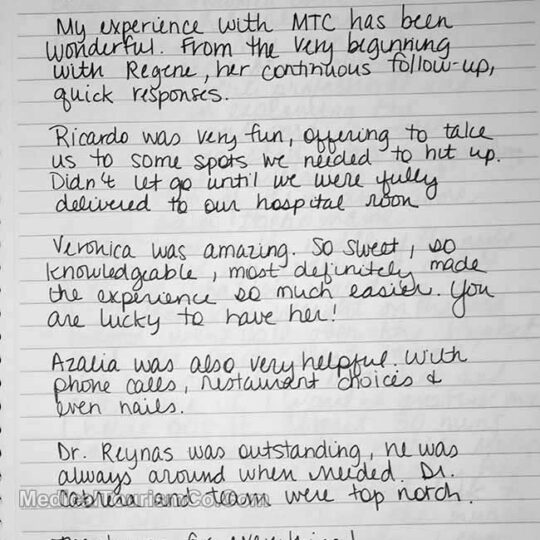 My experience with MTC has been
wonderful. From the very beginning
with Regene, her continuous follow-up,
quick responses.
Ricardo was very fun, offering to take
us to some spots we needed to hit up.
Didn't let go until we were fully
delivered to our hospital room
Veronica was amazing. So sweet, so
knowledgeable, most definitely made
the experience so much easier. You
are lucky to have her!
Azalia was also very helpful. With
phone calls, restaurant choices &
even nails.
Dr. Reynas was outstanding, he was
always around when needed. Dr.
and team were top notch.
MedicalTourismCo.Com
for everything!